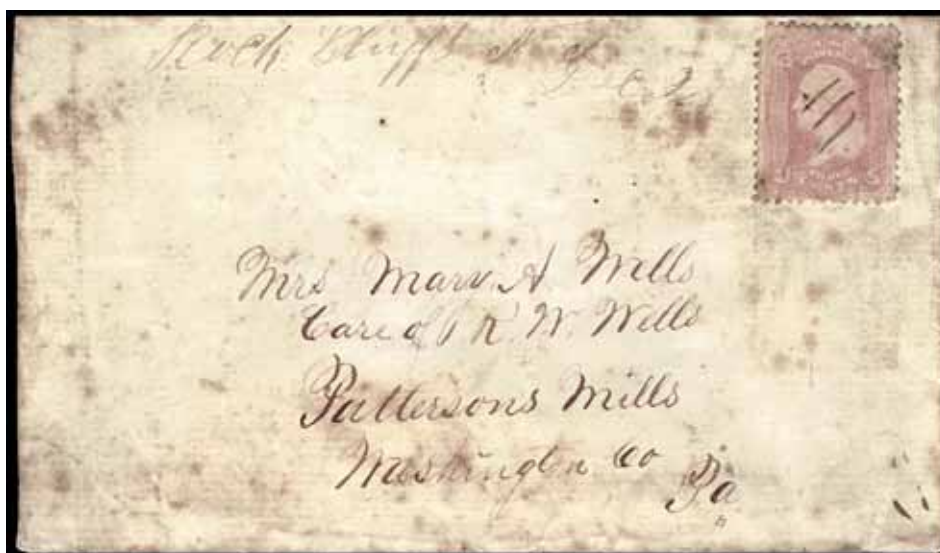 Rock Bluffs N. T.
Dec 2
Mrs Mary A Wells
Care of R. W. Wells
Pattersons Mills
Washington Co
Pa